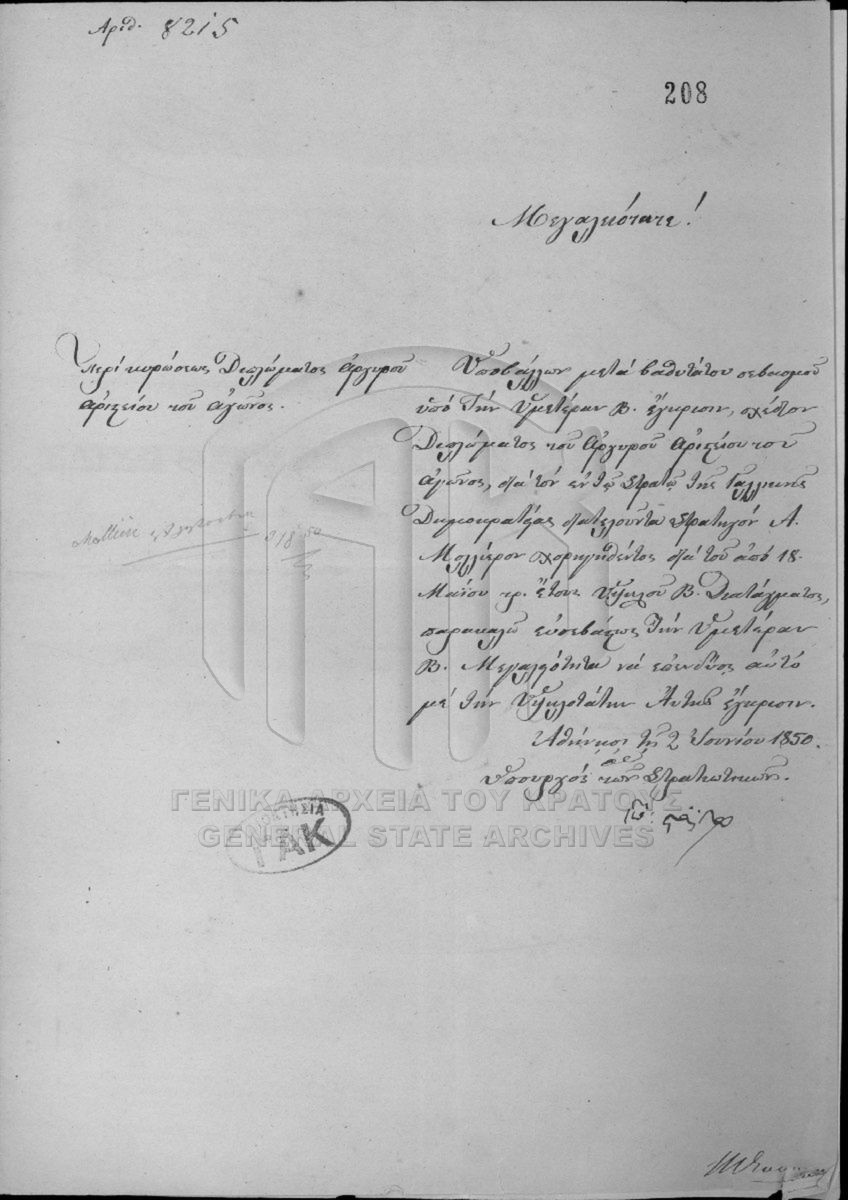 Αριθ. 8215
208
Μεγαλειότατε!
Περί κυρώσεως Διπλώματος Αργυρού
Αριστείου του Αγώνος.
Υποβάλλων μετά βαθυτάτου σεβασμού
υπό Την Υμετέραν Β. έγκρισιν, σχέδιον
Διπλώματος του Αργυρού Αριστείου του
Αγώνος, διά τον εν τω Στρατώ της Γαλλικής
Δημοκρατίας διατελούντα Στρατηγόν Α.
Μολλιέρον χορηγηθέντος διά του από 18
Μαΐου τρ. έτους Υψηλού Β. Διατάγματος,
παρακαλώ ευσεβάστως Την Υμετέραν
Β. Μεγαλειότητα να επενδύση αυτό
με την Υψηλοτάτην Αυτής έγκρισιν.
Αθήνησι τη 2 Ιουνίου 1850.
Υπουργός των Στρατιωτικών.
ΙΔΙΟΚΤΗΣΙΑ
ΓΑΚ
ΓΕΝΙΚΑ ΑΡΧΕΙΑ ΤΟΥ ΚΡΑΤΟΥΣ
GENERAL STATE ARCHIVES